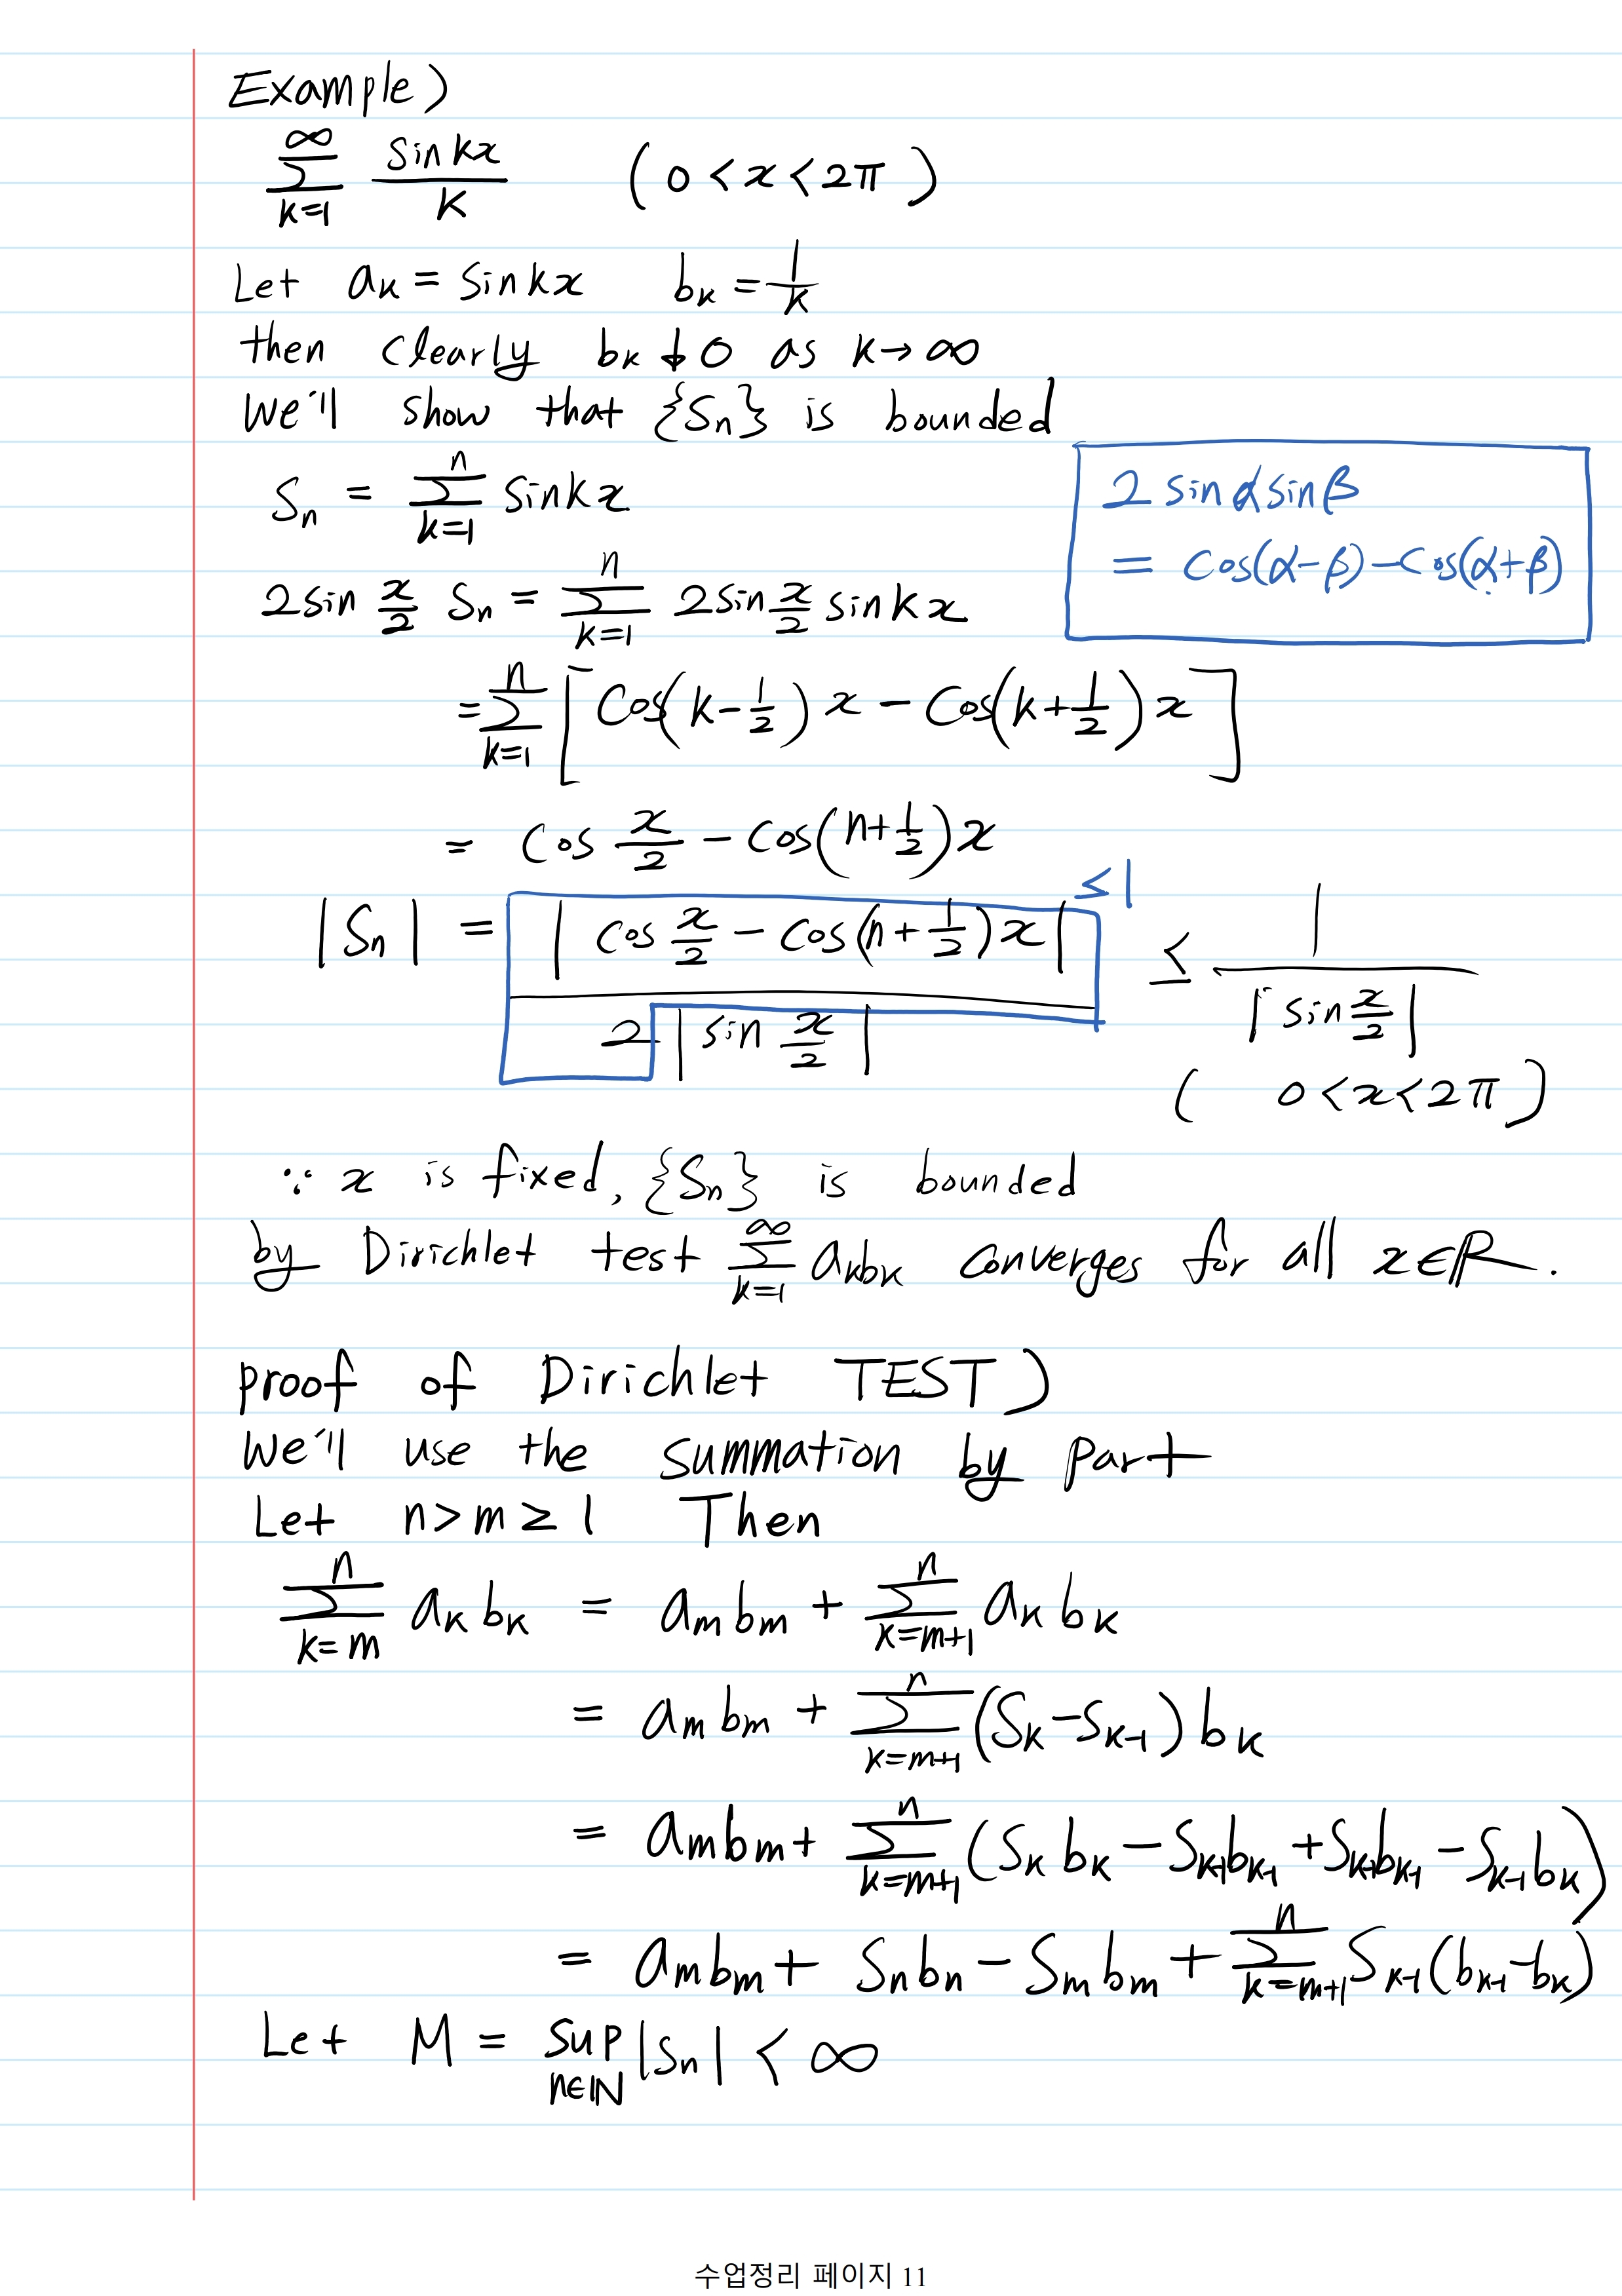 Example)
∑_{k=1}^{∞} sin kx / k (0 < x < 2π)
Let a_k = sin kx b_k = 1/k
then clearly b_k ↓ 0 as k → ∞
we'll show that {S_n} is bounded
S_n = ∑_{k=1}^{n} sin kx
2 sin α sin β
= cos(α-β) - cos(α+β)
2 sin x/2 S_n = ∑_{k=1}^{n} 2 sin x/2 sin kx
= ∑_{k=1}^{n} [ cos(k - 1/2) x - cos(k + 1/2) x ]
= cos x/2 - cos(n + 1/2) x
≤ 1
|S_n| = | cos x/2 - cos(n + 1/2) x | / 2 | sin x/2 | ≤ 1 / | sin x/2 |
( 0 < x < 2π )
∵ x is fixed, {S_n} is bounded
by Dirichlet test ∑_{k=1}^{∞} a_k b_k converges for all x ∈ ℝ.
proof of Dirichlet TEST)
we'll use the summation by part
Let n > m ≥ 1 Then
∑_{k=m}^{n} a_k b_k = a_m b_m + ∑_{k=m+1}^{n} a_k b_k
= a_m b_m + ∑_{k=m+1}^{n} (S_k - S_{k-1}) b_k
= a_m b_m + ∑_{k=m+1}^{n} (S_k b_k - S_{k-1} b_{k-1} + S_{k-1} b_{k-1} - S_{k-1} b_k)
= a_m b_m + S_n b_n - S_m b_m + ∑_{k=m+1}^{n} S_{k-1} (b_{k-1} - b_k)
Let M = sup_{n∈ℕ} |S_n| < ∞
수업정리 페이지 11